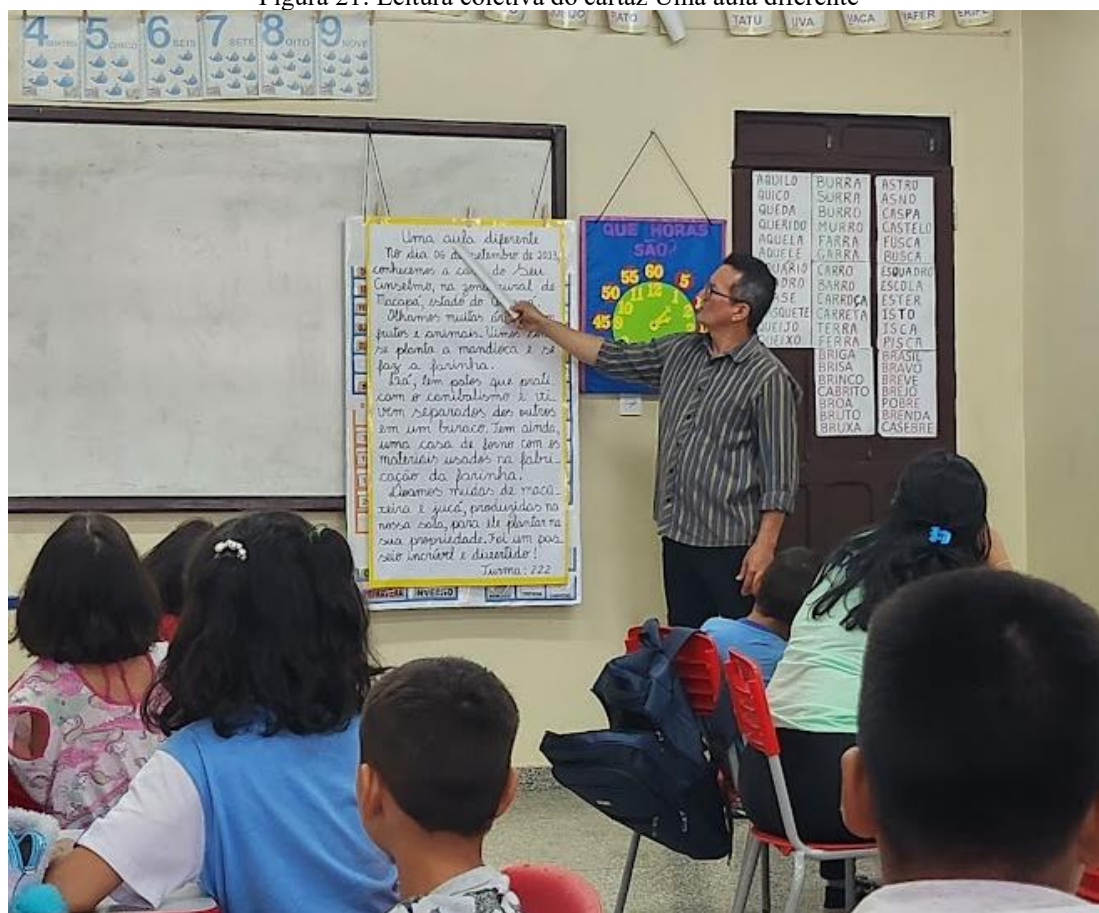 Figura 21: Leitura coletiva do cartaz Uma aula diferente
4 QUATRO 5 CINCO 6 SEIS 7 SETE 8 OITO 9 NOVE
PATO
TATU
UVA
VACA
Uma aula diferente
No dia 06 de setembro de 2023,
conhecemos a casa do Seu
Anselmo, na zona rural de
Macapá, estado do
Olhamos muitas
frutos e animais. Vimos
se planta a mandioca e se
faz a farinha.
Lá, tem patos que prati-
cam o canibalismo e vi-
vem separados dos outros
em um buraco. Tem ainda,
uma casa de forno com os
materiais usados na fabri-
cação da farinha.
Levamos mudas de maca-
xeira e jucá, produzidas na
nossa sala, para ele plantar na
sua propriedade. Foi um pas-
seio incrível e divertido!
Turma: 222
INVERNO
QUE HORAS
SÃO?
55 60 5
50 11 12 1
45
AQUILO
QUICO
QUEDA
QUERIDO
AQUELA
AQUELE
QUEIJO
QUEIXO
BURRA
SURRA
BURRO
MURRO
FARRA
GARRA
CARRO
BARRO
CARROÇA
CARRETA
TERRA
FERRA
BRIGA
BRISA
BRINCO
CABRITO
BROA
BRUTO
BRUXA
ASTRO
ASNO
CASPA
CASTELO
FUSCA
BUSCA
ESQUADRO
ESCOLA
ESTER
ISTO
ISCA
PISCA
BRASIL
BRAVO
BREVE
BREJO
POBRE
BRENDA
CASEBRE